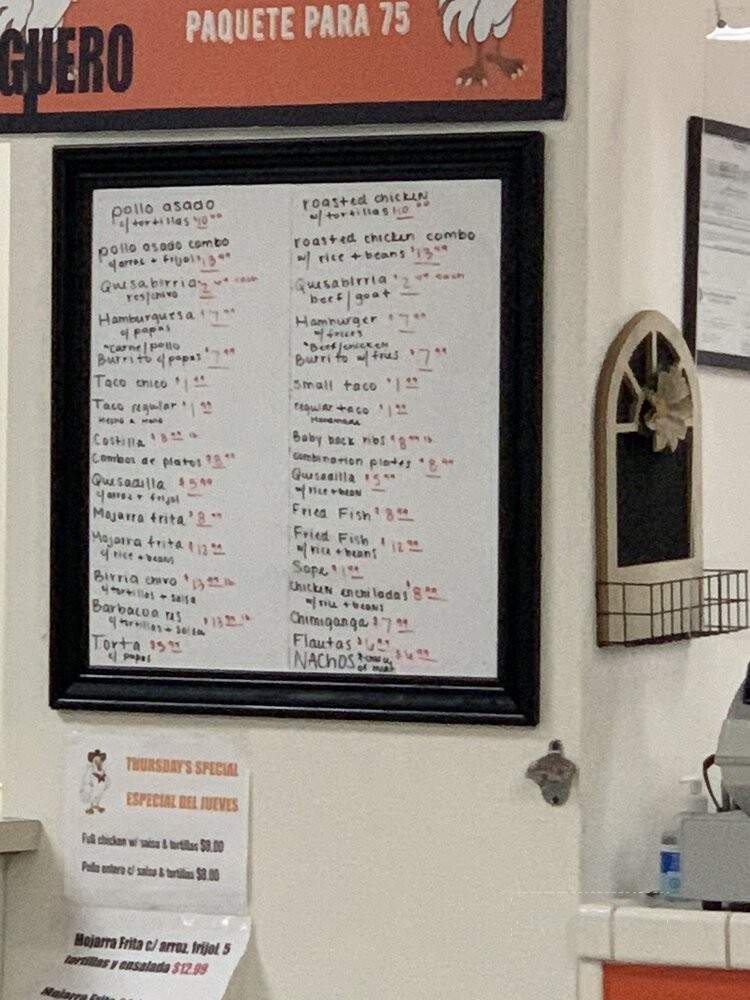 GUERO
PAQUETE PARA 75
pollo asado
c/tortillas $10.00
pollo asado combo
c/arros + frijol $13.99
Quesabirria $2.49 each
res/chivo
Hamburguesa $7.99
c/ papas
*carne/pollo
Burrito c/papas $7.99
Taco chico $1
Taco regular $1
Hecho a mano
Costilla $8.99 lb
Combos de platos $8.99
Quesadilla $5.99
c/arros + frijol
Mojarra frita $8.99
Mojarra frita $12.99
c/ rice + beans
Birria chivo $13.99 lb
c/tortillas + salsa
Barbacoa res $13.99 lb
c/tortillas + salsa
Torta $5.99
c/ papas
roasted chicken
w/tortillas $10.00
roasted chicken combo
w/ rice + beans $13.99
Quesabirria $2.49 each
beef/goat
Hamburger $7.99
w/fries
*Beef/chicken
Burrito w/fries $7.99
small taco $1
regular taco $1
Handmade
Baby back ribs $8.99 lb
combination plates $8.99
Quesadilla $5.99
w/rice+bean
Fried Fish $8.99
Fried Fish $12.99
w/rice + beans
Sope $1.99
chicken enchiladas $8.99
w/rice + beans
Chimiganga $7.99
Flautas $6.99
NACHOS *choice of meat $6.99
THURSDAY'S SPECIAL
ESPECIAL DEL JUEVES
Full chicken w/ salsa & tortillas $9.00
Pollo entero c/ salsa & tortillas $9.00
Mojarra Frita c/ arroz, frijol, 5
tortillas y ensalada $12.99
Mojarra Frita